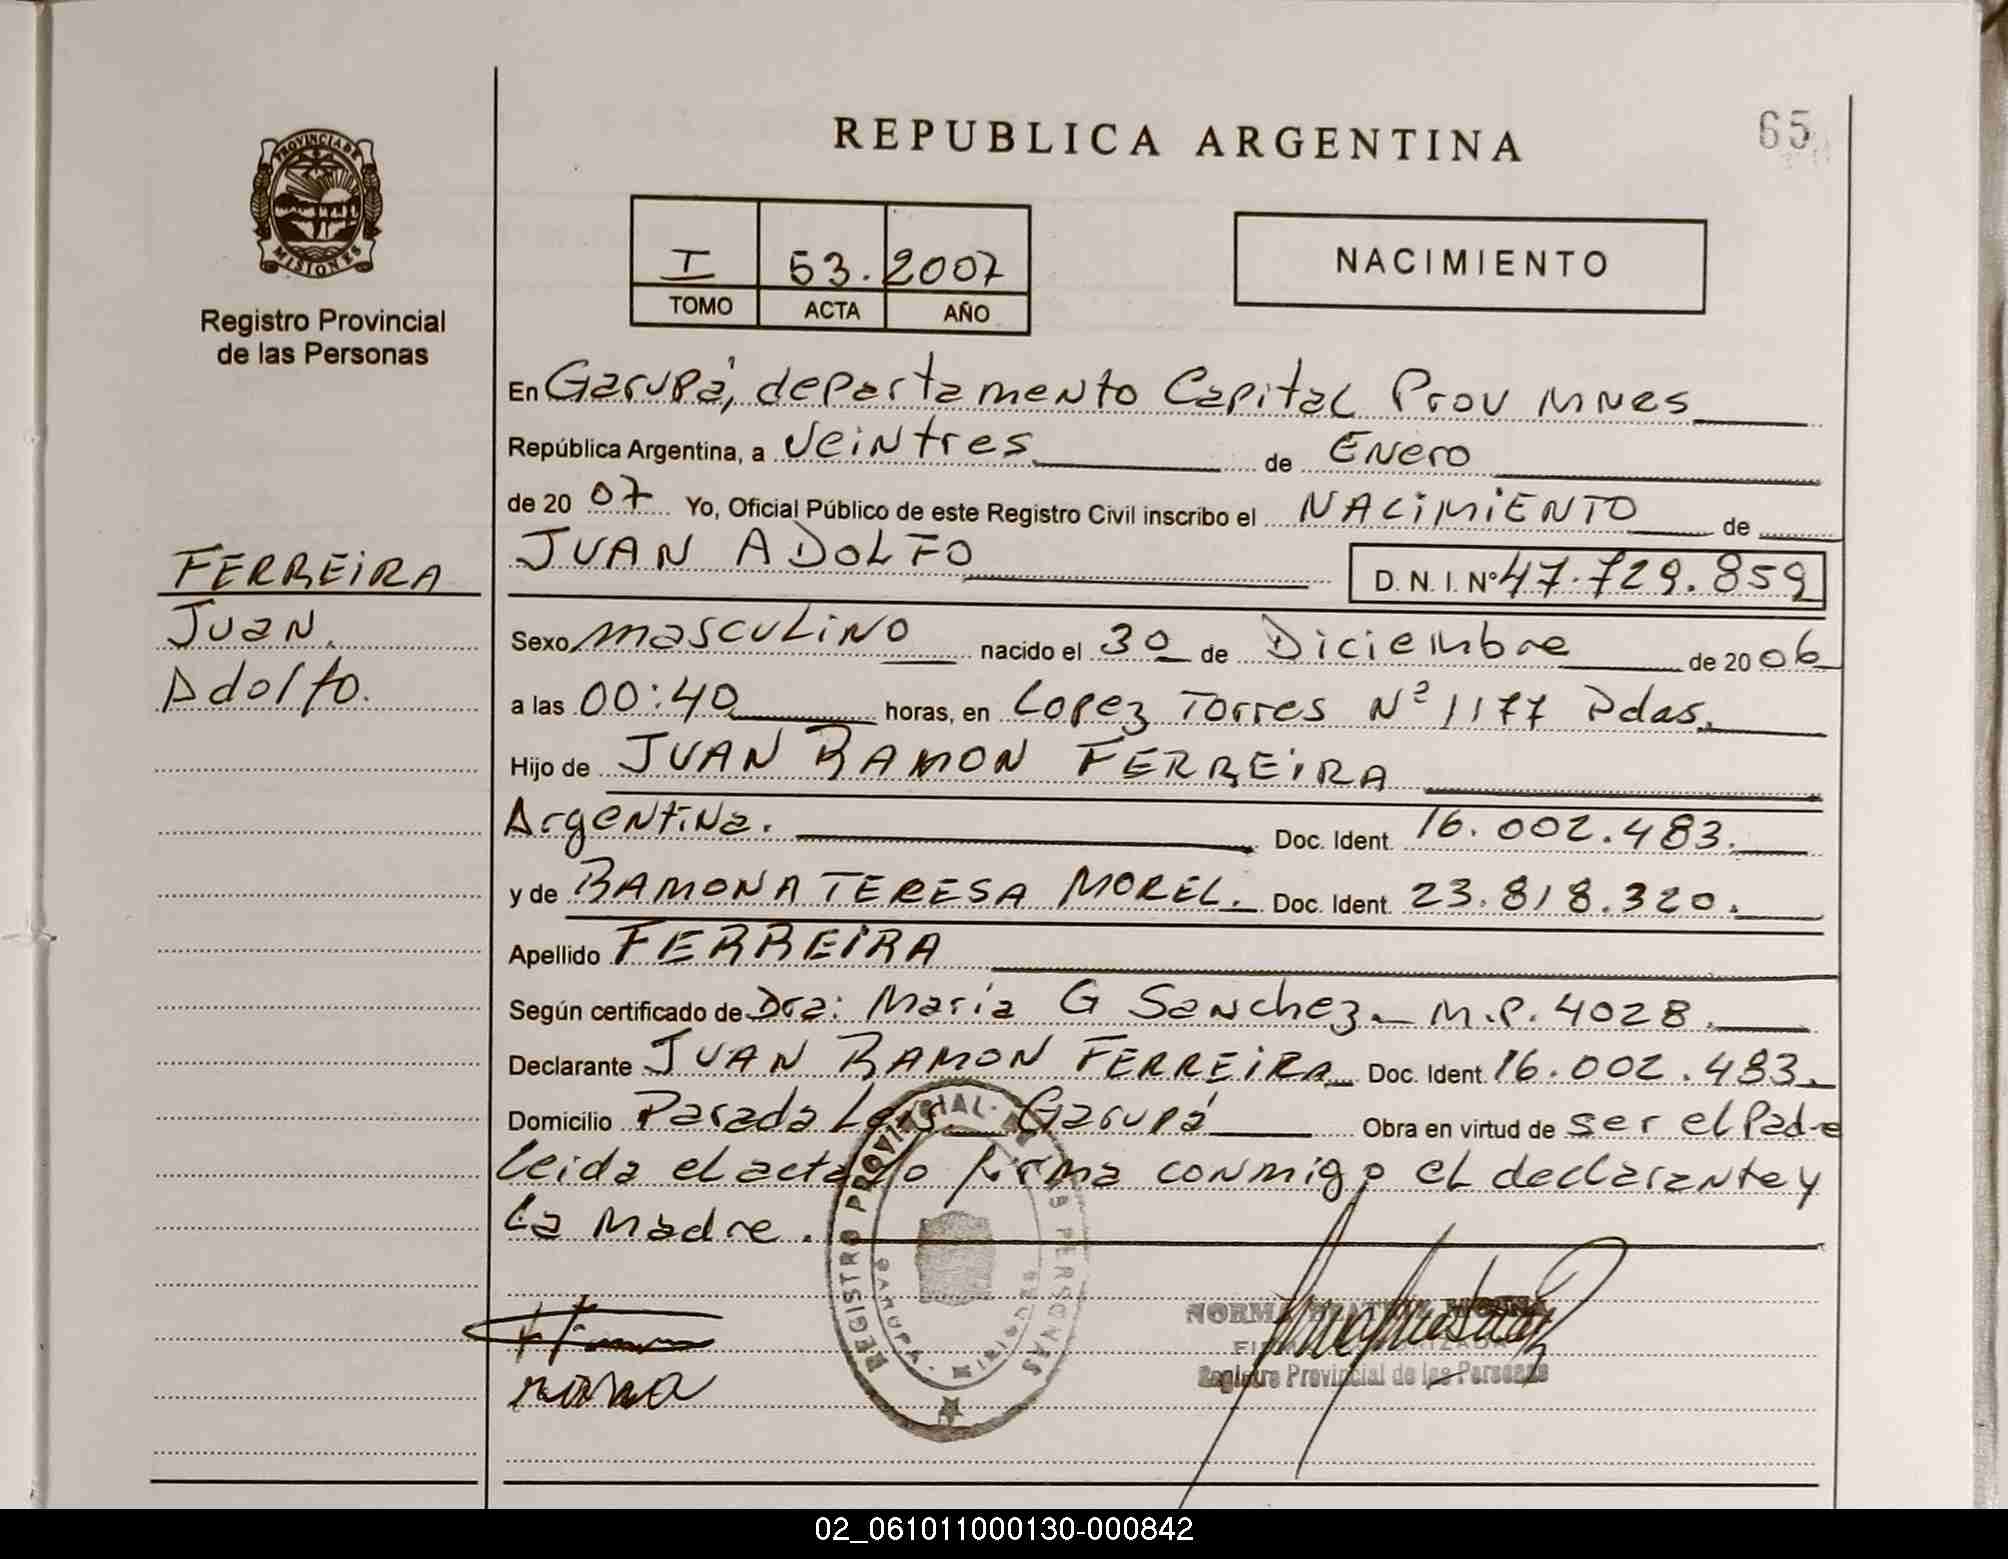 65
REPUBLICA ARGENTINA
PROVINCIA DE
MISIONES
Registro Provincial
de las Personas
I 53. 2007
TOMO ACTA AÑO
NACIMIENTO
En Garupá, departamento Capital Prov Mnes
República Argentina, a Veintres de Enero
de 20 07 Yo, Oficial Público de este Registro Civil inscribo el NACIMIENTO de
JUAN ADOLFO D. N. I. Nº 47.729.859
FERREIRA
Juan
Adolfo.
Sexo masculino nacido el 30 de Diciembre de 20 06
a las 00:40 horas, en Lopez Torres Nº 1177 Pdas.
Hijo de JUAN RAMON FERREIRA
Argentina. Doc. Ident. 16.002.483.
y de RAMONA TERESA MOREL. Doc. Ident. 23.818.320.
Apellido FERREIRA
Según certificado de Dra: Maria G Sanchez. M.P. 4028.
Declarante JUAN RAMON FERREIRA Doc. Ident. 16.002.483.
Domicilio Parada Leis Garupá Obra en virtud de ser el Padre
leida el acta lo firma conmigo el declarante y
la madre.
REGISTRO PROVINCIAL DE LAS PERSONAS
GARUPA. MISIONES
NORMA
Registro Provincial de las Personas
02_061011000130-000842